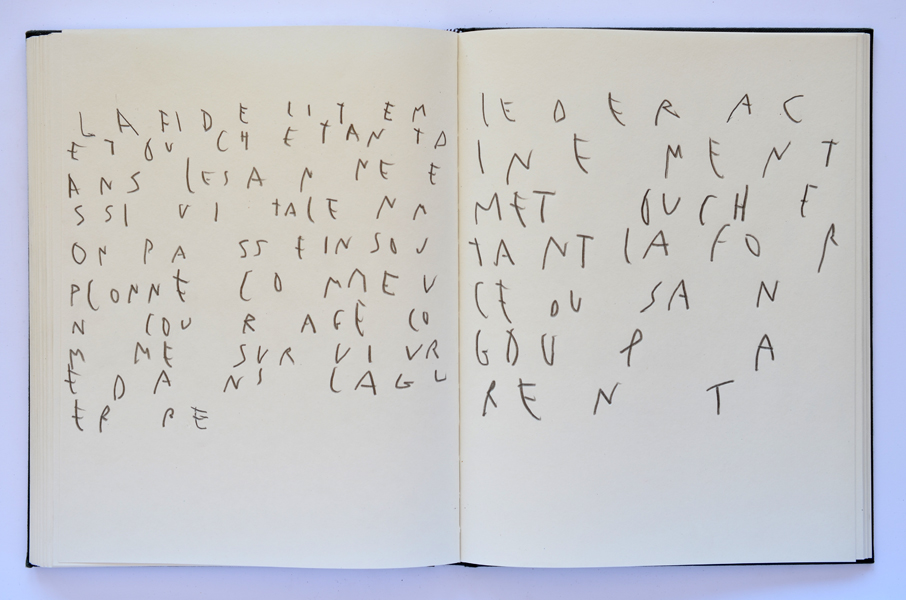 L A FI D E LI T E M
E T OU CH E TAN TD
ANS LESA N NE E
S SI V I TALE N M
ON P A SS EINSOU
PCONNE CO MMEU
N COU R AGE CO
M ME SUR VI VR
E D A NS LAGU
ER RE
LE D E R A C
I N E M E N T
MET OUCH E
TANT LA FO R
CE DU SA N
GDU P A
RE N T A